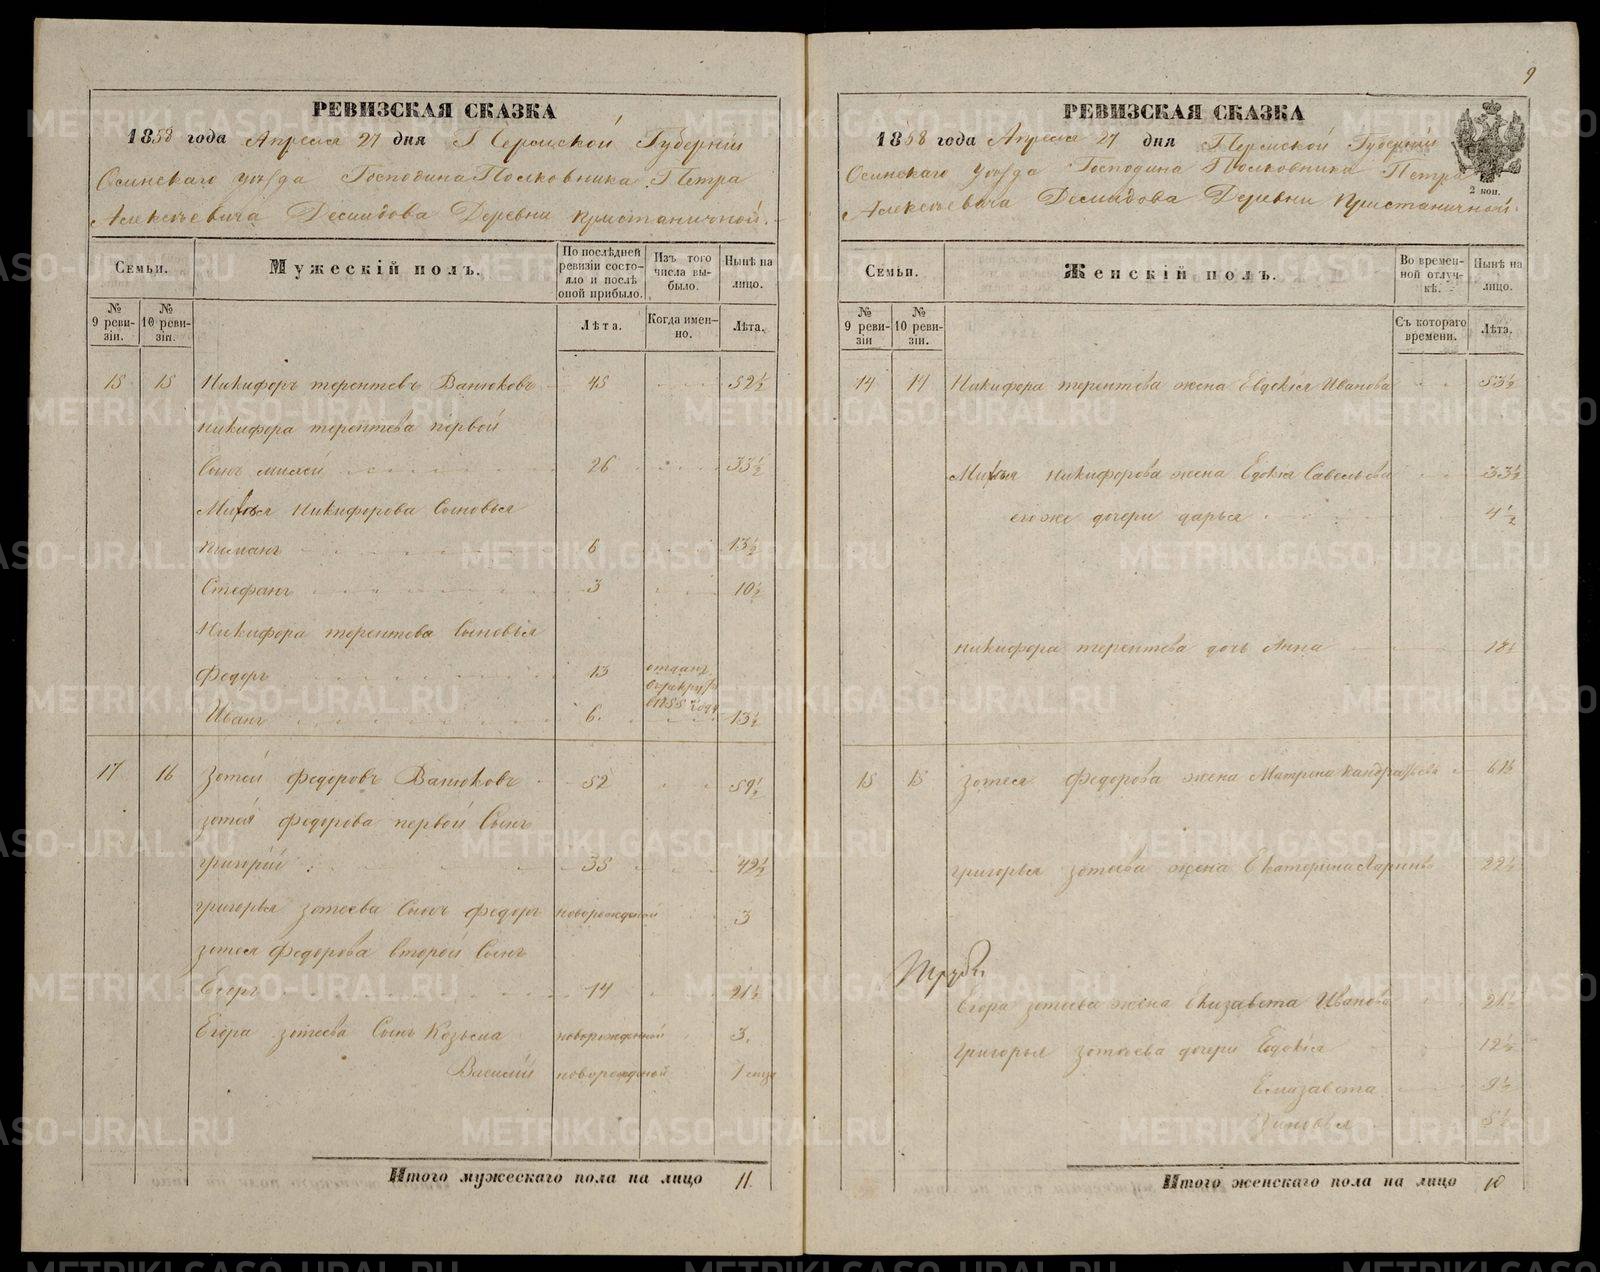 9
РЕВИЗСКАЯ СКАЗКА
1858 года Апреля 27 дня Пермской Губернии
Осинскаго уѣзда Господина Полковника Петра
Алексѣевича Демидова Деревни Пристаничной.
Семьи.
Мужескій полъ.
По послѣдней ревизіи состояло и послѣ оной прибыло.
Изъ того числа выбыло.
Нынѣ на лицо.
№ 9 ревизіи.
№ 10 ревизіи.
Лѣта.
Когда именно.
Лѣта.
15 15 Никифоръ терентевъ Ванюковъ 45 52½
Никифора терентева первой
Сынъ милей 26 33½
Никифорова Сыновья
6 13½
Стефанъ 3 10½
Никифора терентева Сыновья
Федоръ 13 отданъ въ рекруты 1855 года
Иванъ 6. 13½
17 16 Зотей Федоровъ Ванюковъ 52 59½
зотея федорова первой Сынъ
григорій 35 42½
григорья зотеева Сынъ федоръ новорожденой 3
зотея Федорова второй Сынъ
Егоръ 14 21½
Егора зотеева Сынъ Козьма новорожденой 3.
Василій новорожденой 1
Итого мужескаго пола на лицо 11.
РЕВИЗСКАЯ СКАЗКА
1858 года Апреля 27 дня Пермской Губерніи
Осинскаго уѣзда Господина Полковника Петра
Алексѣевича Демидова Деревни Пристаничной.
2 коп.
Семьи.
Женскій полъ.
Во временной отлучкѣ.
Нынѣ на лицо.
№ 9 ревизіи
№ 10 ревизіи.
Съ котораго времени.
Лѣта.
14 14 Никифора терентева жена Евдокія Иванова 53½
Никифорова жена Евдокія Савельева 33½
егоже дочери дарья 4½
никифора терентева дочь Анна 18½
15 15 зотея Федорова жена Матрена Кандратьева 61½
григорья зотеева жена Екатерина Ларинва 22½
Егора зотеева жена Елизавета Иванова 21½
григорья зотеева дочери Евдокія 12½
Елизавета 9½
Зиновья 5½
Итого женскаго пола на лицо 10
METRIKI.GASO-URAL.RU